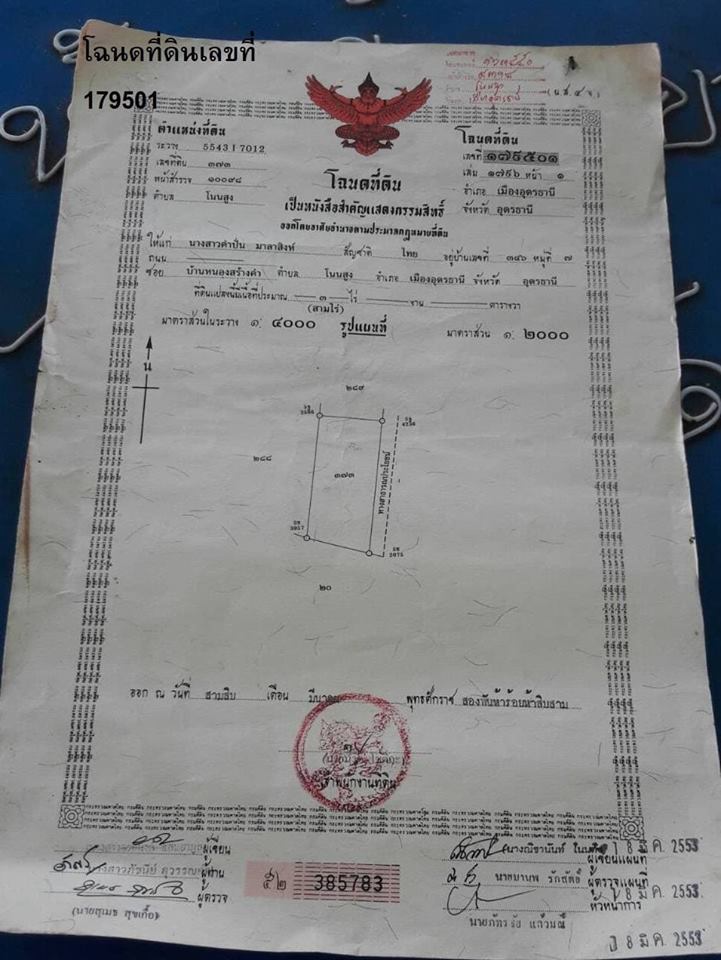 โฉนดที่ดินเลขที่
179501
(น.ส.๔จ)
ตำแหน่งที่ดิน
ระวาง 5543 I 7012
เลขที่ดิน ๓๗๓
หน้าสำรวจ ๑๐๐๙๘
ตำบล โนนสูง
โฉนดที่ดิน
เลขที่ ๑๗๙๕๐๑
เล่ม ๑๗๙๖ หน้า ๑
อำเภอ เมืองอุดรธานี
จังหวัด อุดรธานี
โฉนดที่ดิน
เป็นหนังสือสำคัญแสดงกรรมสิทธิ์
ออกโดยอาศัยอำนาจตามประมวลกฎหมายที่ดิน
ให้แก่ นางสาวคำปั่น มาลาสิงห์ สัญชาติ ไทย อยู่บ้านเลขที่ ๓๔๖ หมู่ที่ ๗
ถนน
ซอย บ้านหนองสร้างคำ ตำบล โนนสูง อำเภอ เมืองอุดรธานี จังหวัด อุดรธานี
ที่ดินแปลงนี้มีเนื้อที่ประมาณ ๓ ไร่ งาน ตารางวา
(สามไร่)
มาตราส่วนในระวาง ๑: ๔๐๐๐ รูปแผนที่ มาตราส่วน ๑: ๒๐๐๐
น
๒๘๙
๒๘๘
๓๗๓
ทางสาธารณประโยชน์
๒๐
ออก ณ วันที่ สามสิบ เดือน มีนาคม พุทธศักราช สองพันห้าร้อยห้าสิบสาม
เจ้าพนักงานที่ดิน
ผู้เขียน
ผู้ทาน
ผู้ตรวจ
(นายสุเมธ สุขเกื้อ)
๕๒ 385783
ผู้เขียนแผนที่
นายมานพ รักสัตย์ ผู้ตรวจแผนที่
หัวหน้าการ
นายภัทรชัย แก้วมณี
18 มี.ค. 2553
18 มี.ค. 2553
18 มี.ค. 2553